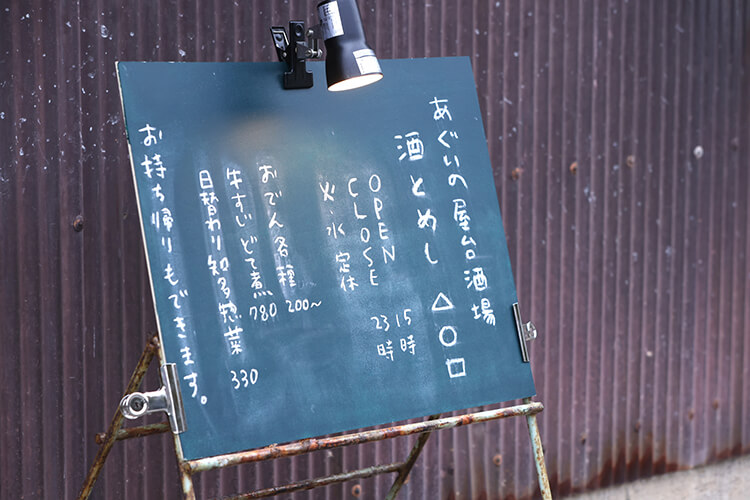 あぐいの屋台酒場
酒とめし △○□
OPEN 15時
CLOSE 23時
火・水 定休
おでん各種 200〜
牛すじどて煮 780
日替わり知多惣菜 330
お持ち帰りもできます。